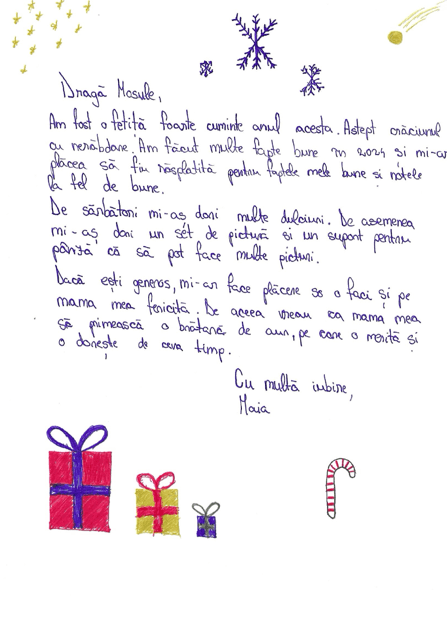 Dragă Moșule,
Am fost o fetiță foarte cuminte anul acesta. Aștept crăciunul
cu nerăbdare. Am făcut multe fapte bune în 2024 și mi-ar
plăcea să fiu răsplătită pentru faptele mele bune și notele
la fel de bune.
De sărbători mi-aș dori multe dulciuri. De asemenea
mi-aș dori un set de pictură și un suport pentru
pânză că să pot face multe picturi.
Dacă ești generos, mi-ar face plăcere so o faci și pe
mama mea fericită. De aceea vreau ca mama mea
să primească o brățară de aur, pe care o merită și
o dorește de ceva timp.
Cu multă iubire,
Maia